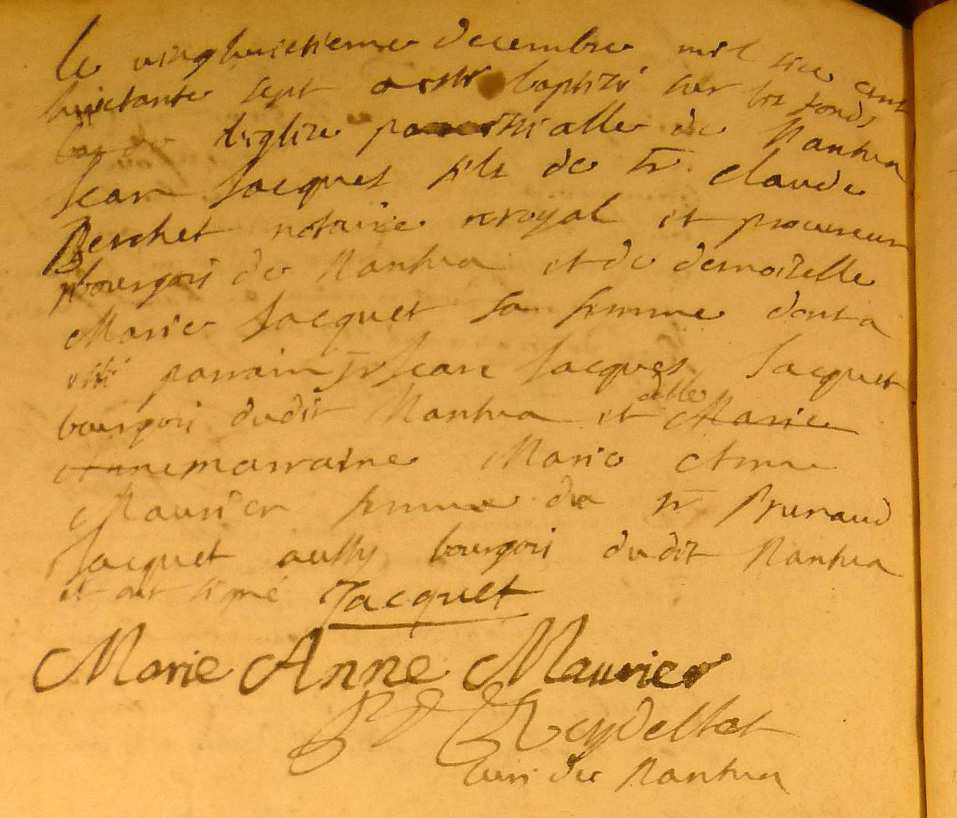 le vinghuictieme decembre mil six cent
huictante sept a esté baptizé sur les fonds
de l'eglize parroissialle de Nantua
Jean Jacques fils de sr. Claude
Berchet notaire royal et procureur
bourgois de Nantua et de demoizelle
Marie Jacquet sa femme dont a
esté parrain sr Jean Jacques Jacquet
bourgois dudit Nantua et delle Marie
Anne marraine Marie Anne
Maurier femme du sr Brunaud
Jacquet aussy bourgois dudit Nantua
et ont signé Jacquet
Marie Anne Maurier
Reydellet
curé de Nantua